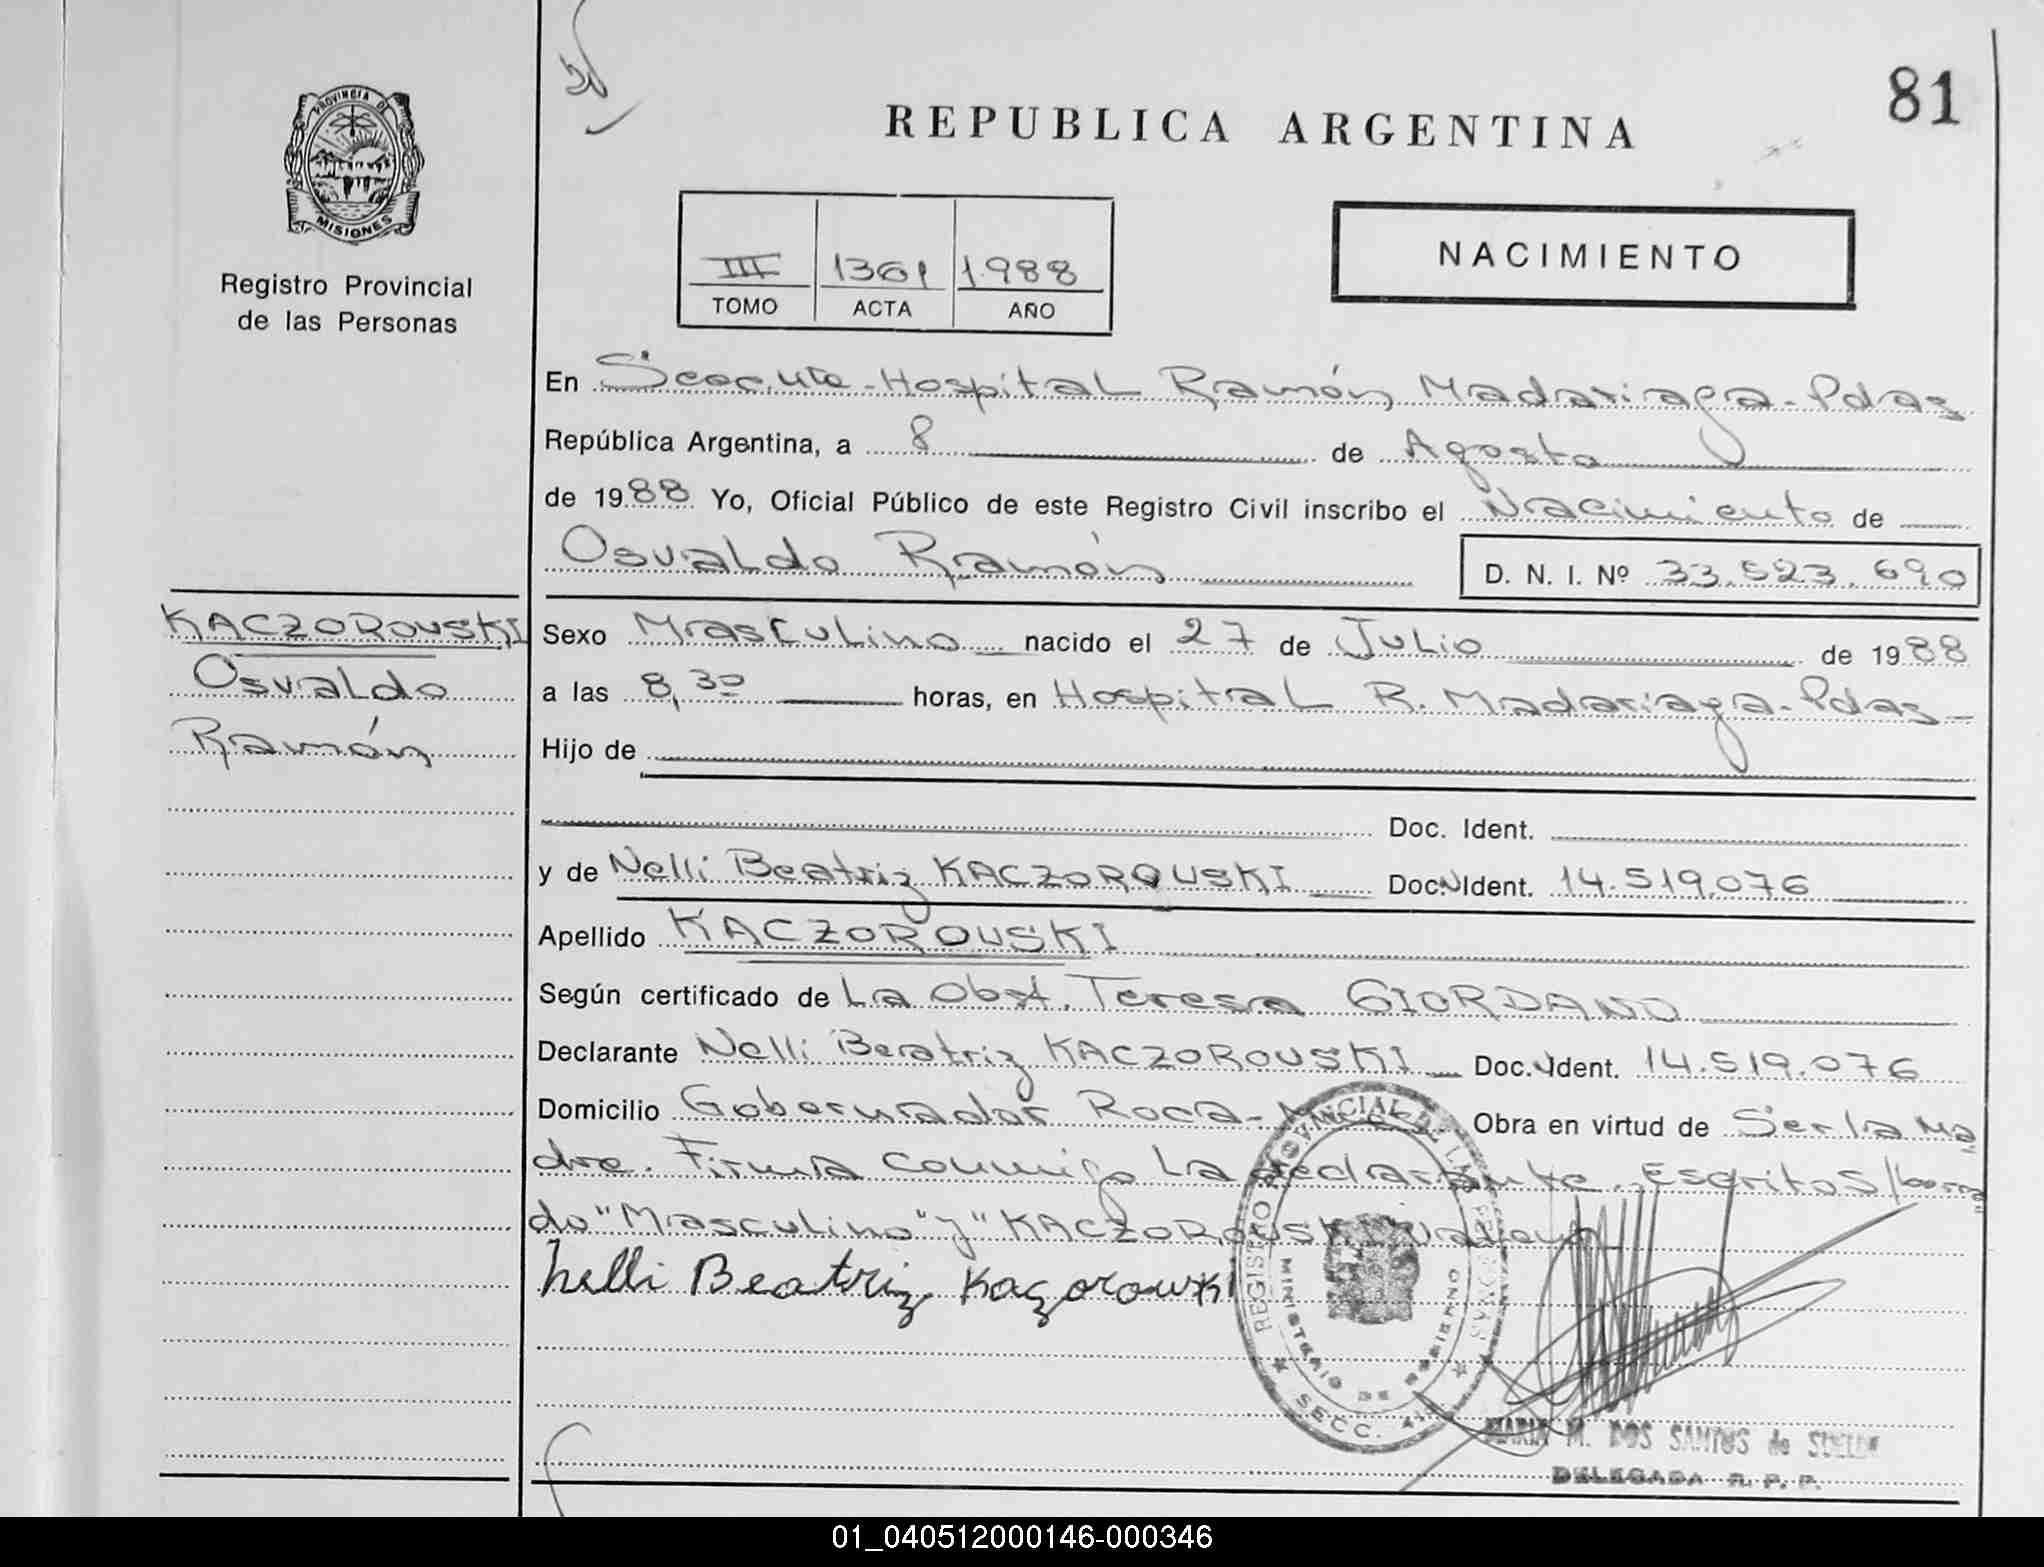 81
REPUBLICA ARGENTINA
PROVINCIA DE
MISIONES
Registro Provincial
de las Personas
NACIMIENTO
III 1361 1.988
TOMO ACTA AÑO
En Hospital Ramón Madariaga - Pdas
República Argentina, a 8 de Agosto
de 1988 Yo, Oficial Público de este Registro Civil inscribo el Nacimiento de
Osvaldo Ramón
D. N. I. Nº 33.523.690
KACZOROWSKI
Osvaldo
Ramón
Sexo Masculino nacido el 27 de Julio de 1988
a las 8,30 horas, en Hospital R. Madariaga - Pdas -
Hijo de
Doc. Ident.
y de Nelli Beatriz KACZOROWSKI Doc. Ident. 14.519.076
Apellido KACZOROWSKI
Según certificado de La Obst. Teresa GIORDANO
Declarante Nelli Beatriz KACZOROWSKI Doc. Ident. 14.519.076
Domicilio Gobernador Roca - Obra en virtud de Ser la Ma
dre. Firma conmigo La declarante. Escritos/borra
do "Masculino" y "KACZOROWSKI" Valen
Nelli Beatriz Kaczorowski
REGISTRO PROVINCIAL DE LAS PERSONAS
MINISTERIO DE GOBIERNO
SECC.
MARIA M. DOS SANTOS de
DELEGADA R. P. P.
01_040512000146-000346